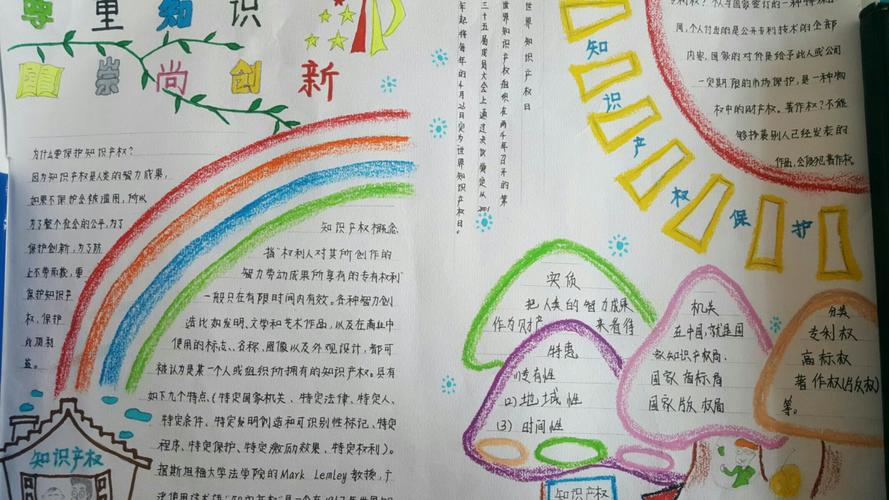 尊重知识
崇尚创新
为什么要保护知识产权?
因为知识产权是人类的智力成果,
如果不保护会被滥用,所以
为了整个社会的公平,为了
保护创新,为了防
上不劳而获,要
保护知识产
权,保护
此项利
益。
知识产权概念
指"权利人对其所创作的
智力劳动成果所享有的专有权利"
一般只在有限时间内有效。各种智力创
造比如发明、文学和艺术作品,以及在商业中
使用的标志、名称、图像以及外观设计,都可
被认为是某一个人或组织所拥有的知识产权。具有
如下九个特点(特定国家机关、特定法律、特定人、
特定条件、特定发明创造和可识别性标记、特定
程序、特定保护、特定激励效果、特定权利)。
据斯坦福大学法学院的Mark Lemley教授,广
知识产权
世界知识产权日
世界知识产权组织在两千年召开的第
三十五届成员大会上通过决议确定从2001
年起将每年的4月26日定为世界知识产权日。
知识产权保护
用,个人付出的是公开专利技术的全部
内容,国家的对价是给予此人或公司
一定期限的市场保护,是一种物
权中的财产权。著作权?不能
够抄袭别人已经发表的
作品,会侵犯著作权。
实质
把人类的智力成果
作为财产来看待
特惠
(1)专有性
(2)地域性
(3)时间性
机关
在中国,就是国
家知识产权局、
国家商标局
国家版权局
分类
专利权
商标权
著作权(版权)
等。
知识产权